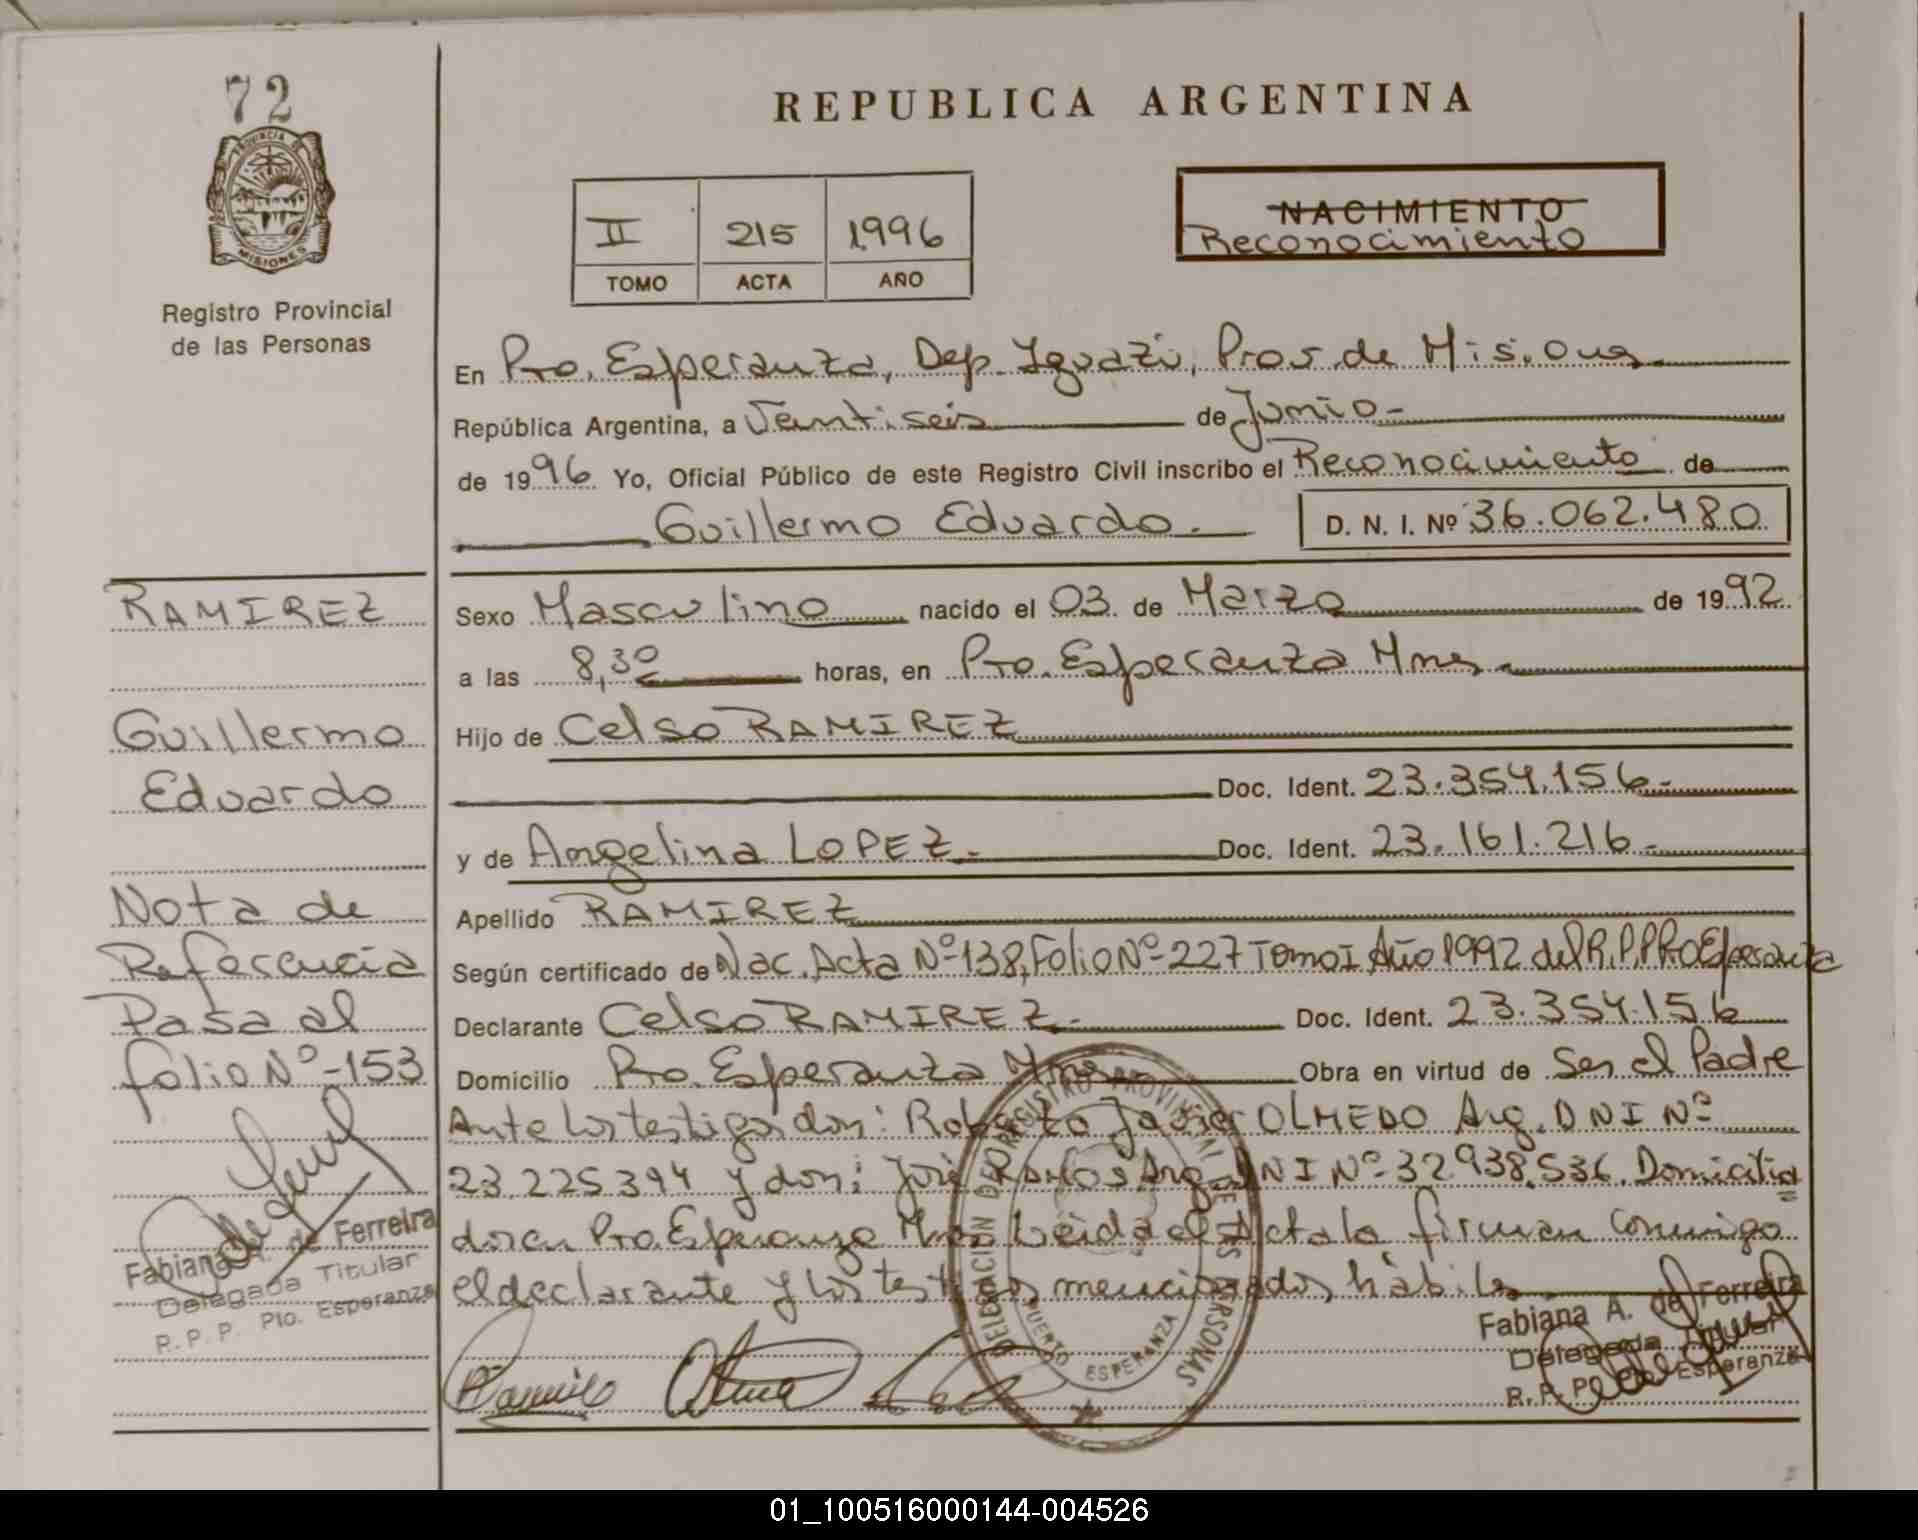 72
PROVINCIA DE
MISIONES
Registro Provincial
de las Personas
REPUBLICA ARGENTINA
II 215 1996
TOMO ACTA AÑO
NACIMIENTO
Reconocimiento
En Pto. Esperanza, Dep. Iguazú, Prov. de Misiones
República Argentina, a Veintiseis de Junio
de 1996 Yo, Oficial Público de este Registro Civil inscribo el Reconocimiento de
Guillermo Eduardo. D. N. I. Nº 36.062.480
RAMIREZ
Guillermo
Eduardo
Nota de
Referencia
Pasa al
folio Nº-153
Fabiana A. de Ferreira
Delegada Titular
R. P. P. Pto. Esperanza
Sexo Masculino nacido el 03 de Marzo de 1992
a las 8,30 horas, en Pto. Esperanza Mnes
Hijo de Celso RAMIREZ
Doc. Ident. 23.354.156-
y de Angelina LOPEZ. Doc. Ident. 23.161.216-
Apellido RAMIREZ
Según certificado de Nac. Acta Nº-138, Folio Nº-227 Tomo I Año 1992 del R.P.P. Pto Esperanza
Declarante Celso RAMIREZ- Doc. Ident. 23.354.156
Domicilio Pto. Esperanza Mnes Obra en virtud de Ser el Padre
Ante los testigos don: Roberto Javier OLMEDO Arg. DNI Nº
23.225.394 y don: José RAMOS Arg. DNI Nº-32938.536. Domicilia
dos en Pto. Esperanza Mnes Leida el Acta la firman conmigo
el declarante y los testigos mencionados hábiles
DELEGACION DE REGISTRO PROVINCIAL DE LAS PERSONAS
PUERTO ESPERANZA
Fabiana A. de Ferreira
Delegada Titular
R. P. P. Pto. Esperanza
01_100516000144-004526